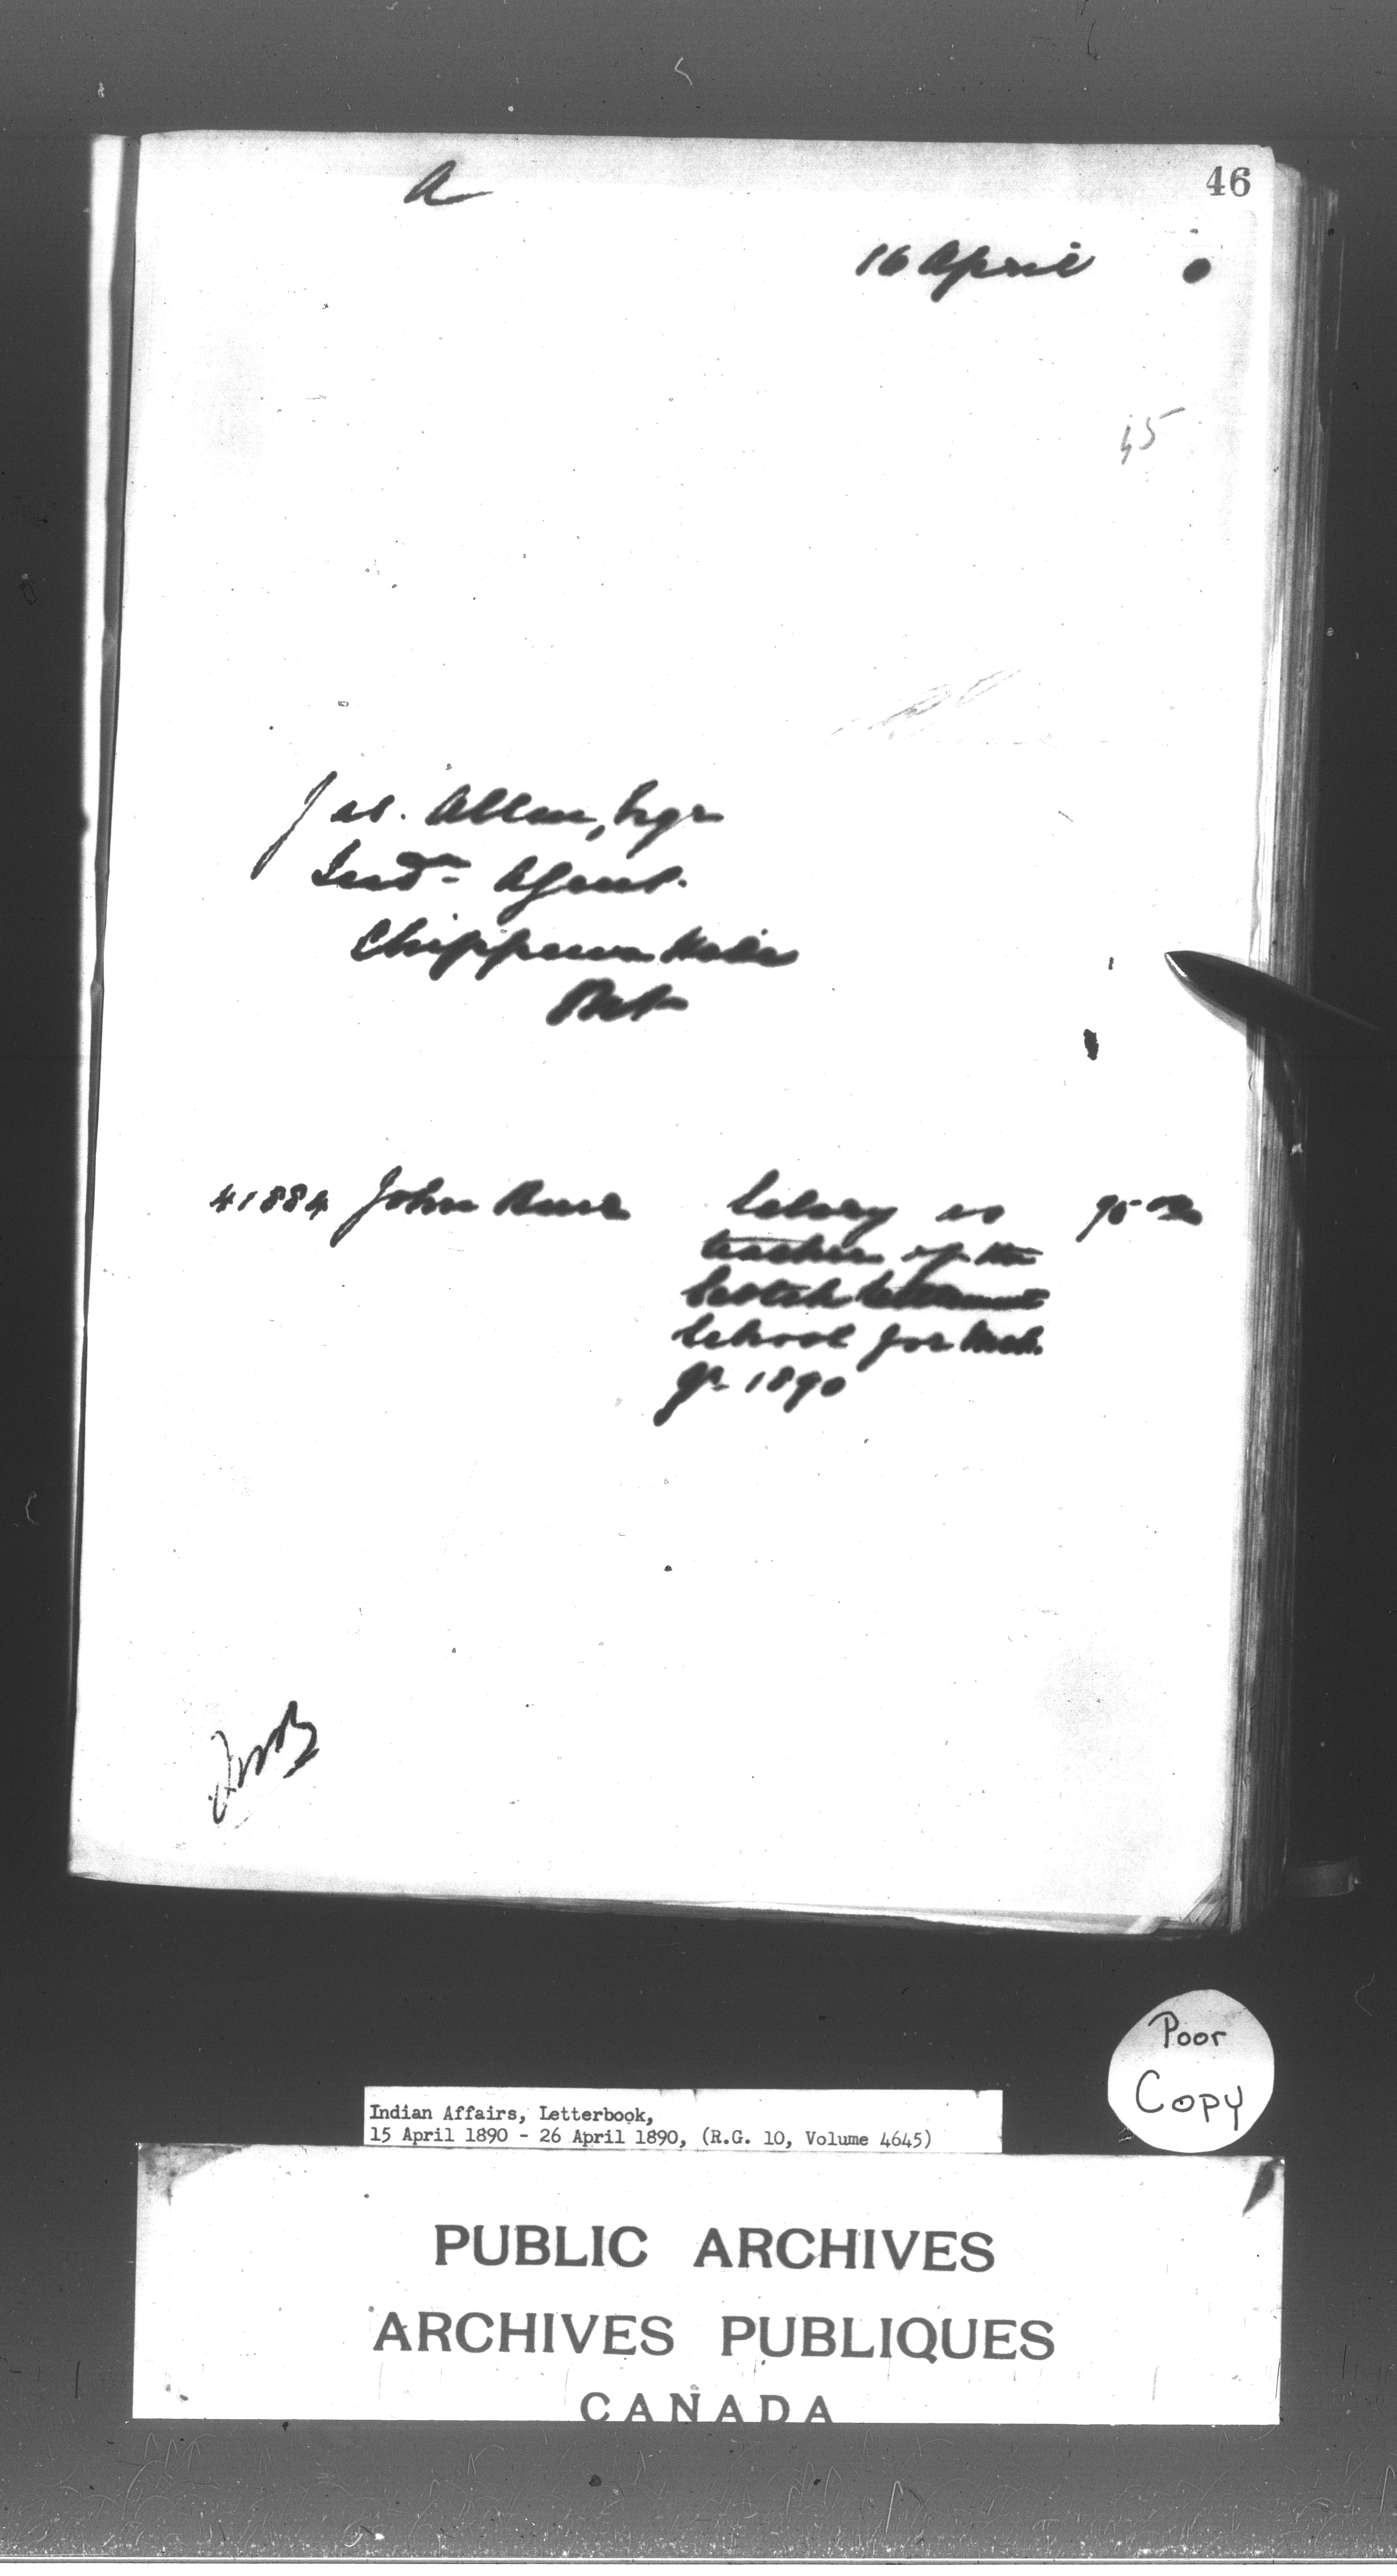 A
46
16 April 0
45
Jas. Allen, Esqr
Ind^n Agent.
Chippewa Hill
Ont
41884 John Burr Salary as 75 00
teacher of the
Scotch Settlement
School for Mch.
Qr 1890
Poor
Copy
Indian Affairs, Letterbook,
15 April 1890 - 26 April 1890, (R.G. 10, Volume 4645)
PUBLIC ARCHIVES
ARCHIVES PUBLIQUES
CANADA